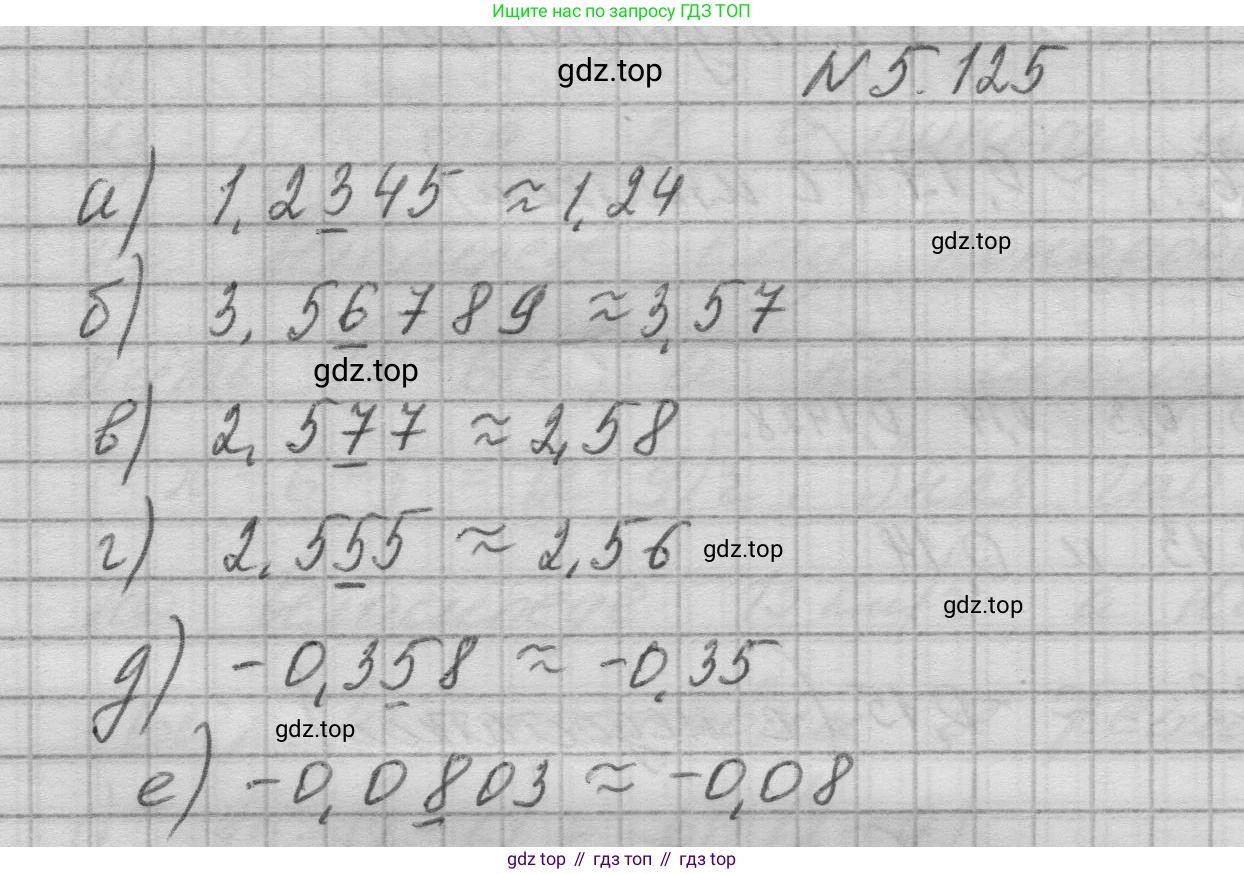 Ищите нас по запросу ГДЗ ТОП
gdz.top
N 5.125
а) 1,2345 ≈ 1,24
gdz.top
б) 3,56789 ≈ 3,57
gdz.top
в) 2,577 ≈ 2,58
г) 2,555 ≈ 2,56
gdz.top
gdz.top
д) -0,358 ≈ -0,35
gdz.top
е) -0,0803 ≈ -0,08
gdz top // гдз топ // гдз top